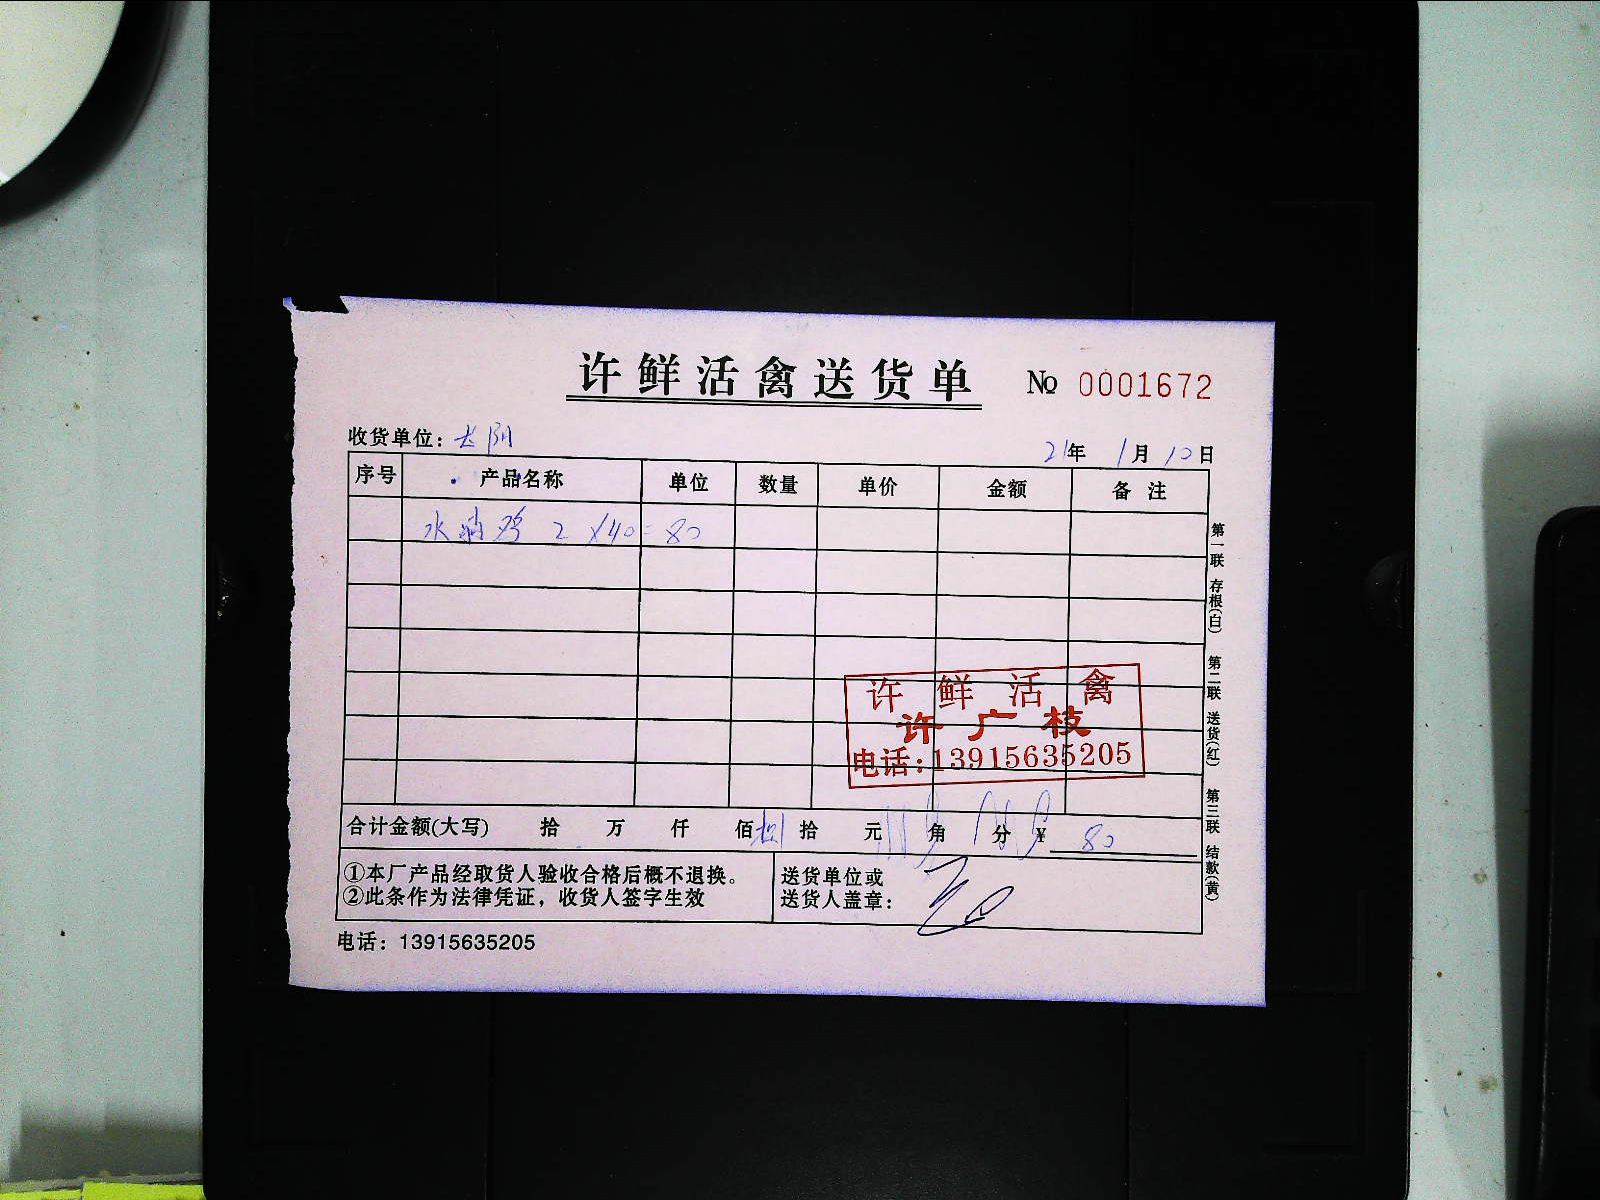 许鲜活禽送货单 № 0001672
收货单位：长阴
21年 1月 10日
序号 产品名称 单位 数量 单价 金额 备注
水 鸡 2 X40=80
许鲜活禽
许广枝
电话:13915635205
合计金额(大写) 拾 万 仟 佰捌拾 元 角 分 ¥ 80
①本厂产品经取货人验收合格后概不退换。
②此条作为法律凭证，收货人签字生效
送货单位或
送货人盖章：
电话：13915635205
第一联 存根(白) 第二联 送货(红) 第三联 结款(黄)